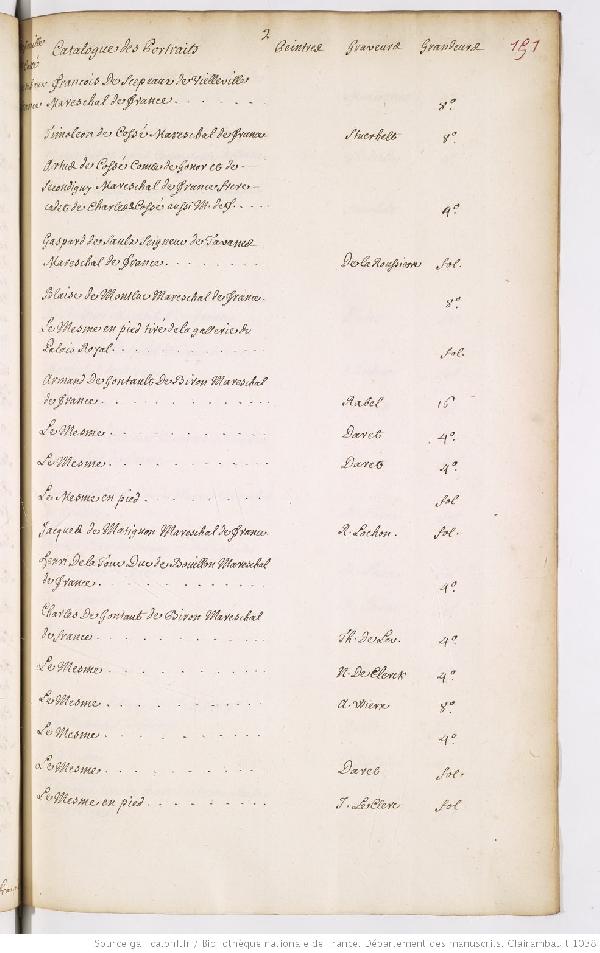 2
Catalogue des Portraits Peintres Graveurs Grandeurs 191
François De Scepeaux de Vielleville
Mareschal de france. . . . . . . 8º
Timoleon de Cossé Mareschal de france Stuerhelt 8º
Artus de Cossé Comte de Gonor et de
Secondigny Mareschal de france, frere
cadet de Charles de Cossé aussi M. de f. . . . . 4º
Gaspard de Saulx Seigneur de Tavanes
Mareschal de france. . . . . . . . De la Roussiere fol.
Blaise de Montluc Mareschal de france. 8º
Le Mesme en pied tiré de la gallerie du
Palais Royal. . . . . . . . . . . fol.
Armand De Gontault De Biron Mareschal
de france. . . . . . . . . . . . Rabel 16
Le Mesme. . . . . . . . . . . Daret 4º
Le Mesme. . . . . . . . . . . Daret 4º
Le Mesme en pied. . . . . . . . . fol
Jacques de Matignon Mareschal de france R. Lochon. fol.
Henri De la Tour Duc de Bouillon Mareschal
de france. . . . . . . . . . . . 4º
Charles De Gontault de Biron Mareschal
de france. . . . . . . . . . . . Th. De Leu. 4º
Le Mesme. . . . . . . . . . . N. De Clerck 4º
Le Mesme. . . . . . . . . . . A. Wierx 8º
Le Mesme. . . . . . . . . . . 4º
Le Mesme. . . . . . . . . . . Daret fol.
Le Mesme en pied. . . . . . . . . J. Le Clerc fol
Source gallica.bnf.fr / Bibliothèque nationale de France. Département des manuscrits. Clairambault 1038